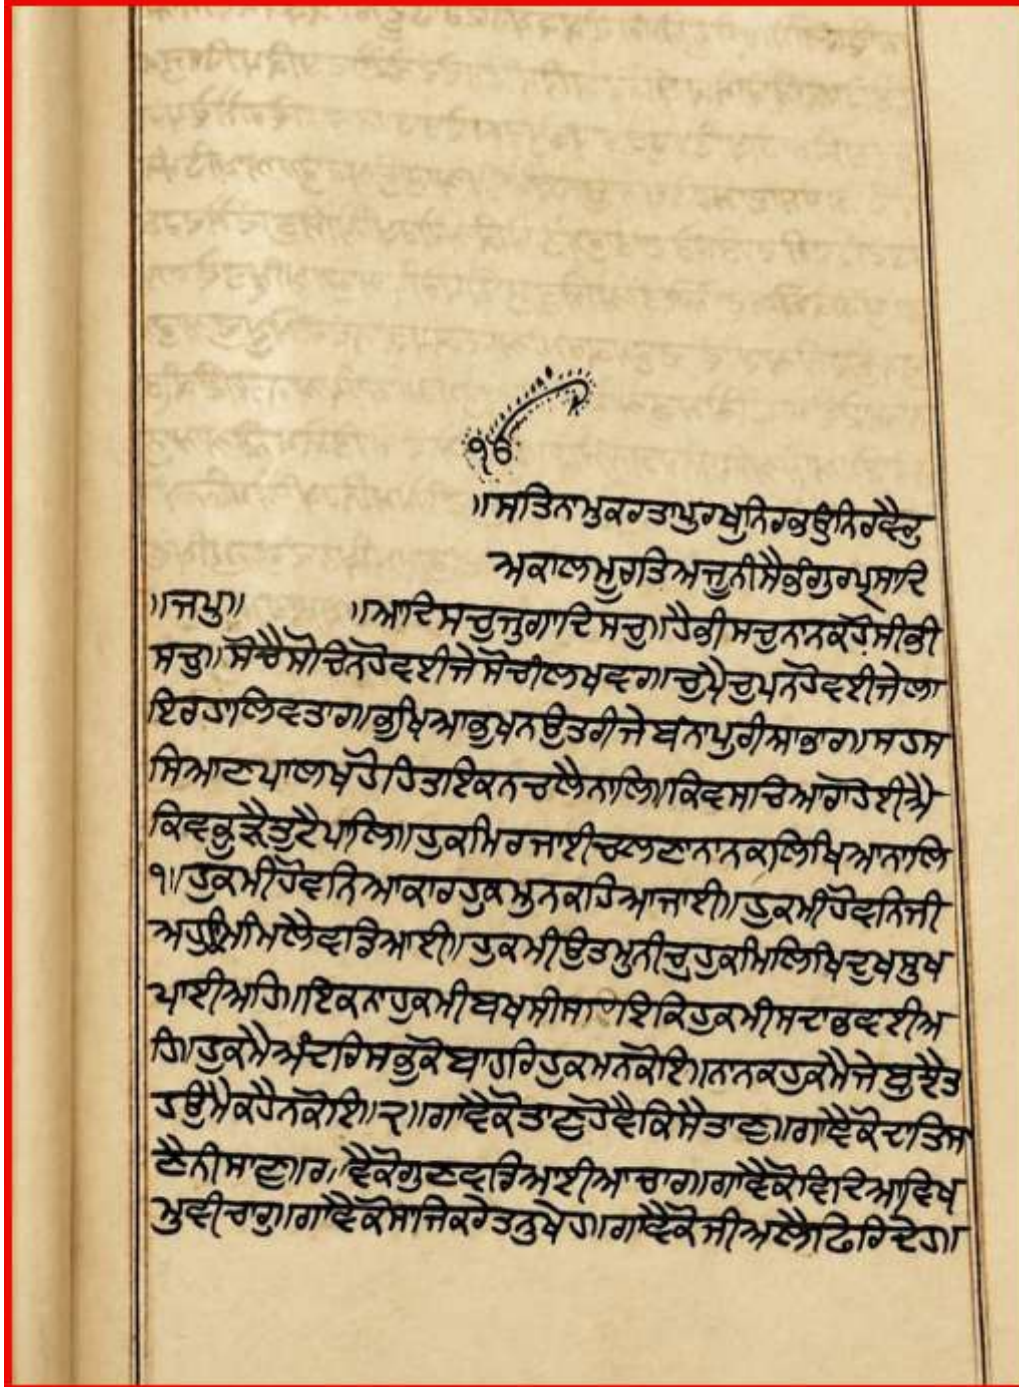 ੴ
॥ਸਤਿਨਾਮੁਕਰਤਾਪੁਰਖੁਨਿਰਭਉਨਿਰਵੈਰੁ
ਅਕਾਲਮੂਰਤਿਅਜੂਨੀਸੈਭੰਗੁਰਪ੍ਰਸਾਦਿ
॥ਜਪੁ॥ ॥ਆਦਿਸਚੁਜੁਗਾਦਿਸਚੁ॥ਹੈਭੀਸਚੁਨਾਨਕਹੋਸੀਭੀ
ਸਚੁ॥ਸੋਚੈਸੋਚਿਨਹੋਵਈਜੇਸੋਚੀਲਖਵਾਰ॥ਚੁਪੈਚੁਪਨਹੋਵਈਜੇਲਾ
ਇਰਹਾਲਿਵਤਾਰ॥ਭੁਖਿਆਭੁਖਨਉਤਰੀਜੇਬੰਨਾਪੁਰੀਆਭਾਰ॥ਸਹਸ
ਸਿਆਣਪਾਲਖਹੋਹਿਤਇਕਨਚਲੈਨਾਲਿ॥ਕਿਵਸਚਿਆਰਾਹੋਈਐ
ਕਿਵਕੂੜੈਤੁਟੈਪਾਲਿ॥ਹੁਕਮਿਰਜਾਈਚਲਣਾਨਾਨਕਲਿਖਿਆਨਾਲਿ
੧॥ਹੁਕਮੀਹੋਵਨਿਆਕਾਰਹੁਕਮੁਨਕਹਿਆਜਾਈ॥ਹੁਕਮੀਹੋਵਨਿਜੀ
ਅਹੁਕਮਿਮਿਲੈਵਡਿਆਈ॥ਹੁਕਮੀਉਤਮੁਨੀਚੁਹੁਕਮਿਲਿਖਿਦੁਖਸੁਖ
ਪਾਈਅਹਿ॥ਇਕਨਾਹੁਕਮੀਬਖਸੀਸ ਇਕਿਹੁਕਮੀਸਦਾਭਵਾਈਅ
ਹਿ॥ਹੁਕਮੈਅੰਦਰਿਸਭੁਕੋਬਾਹਰਿਹੁਕਮਨਕੋਇ॥ਨਾਨਕਹੁਕਮੈਜੇਬੁਝੈਤ
ਹਉਮੈਕਹੈਨਕੋਇ॥੨॥ਗਾਵੈਕੋਤਾਣੁਹੋਵੈਕਿਸੈਤਾਣੁ॥ਗਾਵੈਕੋਦਾਤਿਜ
ਣੈਨੀਸਾਣੁ॥ਗਾਵੈਕੋਗੁਣਵਡਿਆਈਆਚਾਰ॥ਗਾਵੈਕੋਵਿਦਿਆਵਿਖ
ਮੁਵੀਚਾਰੁ॥ਗਾਵੈਕੋਸਾਜਿਕਰੇਤਨੁਖੇਹ॥ਗਾਵੈਕੋਜੀਅਲੈਫਿਰਿਦੇਹ॥